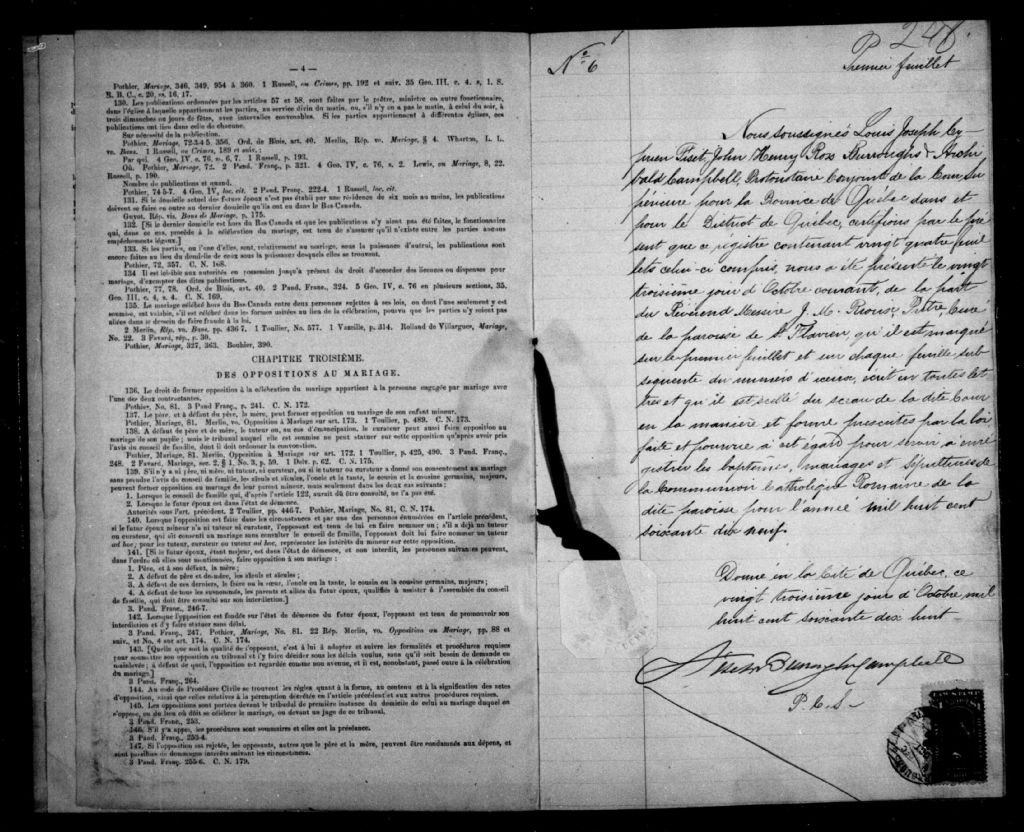 — 4 —
Pothier, Mariage, 346, 349, 954 à 360. 1 Russell, on Crimes, pp. 192 et suiv. 35 Geo. III, c. 4, s. 1. S.
R. B. C., c. 20, ss. 16, 17.
130. Les publications ordonnées par les articles 57 et 58, sont faites par le prêtre, ministre ou autre fonctionnaire,
dans l'église à laquelle appartiennent les parties, au service divin du matin, ou, s'il n'y en a pas le matin, à celui du soir, à
trois dimanches ou jours de fêtes, avec intervalles convenables. Si les parties appartiennent à différentes églises, ces
publications ont lieu dans celle de chacune.
Sur nécessité de la publication.
Pothier, Mariage, 72-3-4-5, 356. Ord. de Blois, art. 40. Merlin, Rép. vo. Mariage, § 4. Wharton, L. L.
vo. Bans. 1 Russell, on Crimes, 189 et suiv.:
Par qui. 4 Geo. IV, c. 76, ss. 6, 7. 1 Russell, p. 193.
Où. Pothier, Mariage, 72. 2 Pand. Franç., p. 321. 4 Geo. IV, c. 76, s. 2. Lewis, on Mariage, 8, 22.
Russell, p. 190.
Nombre de publications et quand.
Pothier, 74-5-7. 4 Geo. IV, loc. cit. 2 Pand. Franç. 222-4. 1 Russell, loc. cit.
131. Si le domicile actuel des futurs époux n'est pas établi par une résidence de six mois au moins, les publications
doivent se faire en outre au dernier domicile qu'ils ont eu dans le Bas Canada.
Guyot, Rép. vis. Bans de Mariage, p. 175.
132. [Si le dernier domicile est hors du Bas Canada et que les publications n'y aient pas été faites, le fonctionnaire
qui, dans ce cas, procède à la célébration du mariage, est tenu de s'assurer qu'il n'existe entre les parties aucuns
empêchements légaux.]
133. Si les parties, ou l'une d'elles, sont, relativement au mariage, sous la puissance d'autrui, les publications sont
encore faites au lieu du domicile de ceux sous la puissance desquels elles se trouvent.
Pothier, 72, 357. C. N. 168.
134 Il est loisible aux autorités en possession jusqu'à présent du droit d'accorder des licences ou dispenses pour
mariage, d'exempter des dites publications.
Pothier, 77, 78. Ord. de Blois, art. 40. 2 Pand. Franç., 324. 5 Geo IV, c. 76 en plusieurs sections, 35.
Geo. III. c. 4, s. 4. C. N. 169.
135. Le mariage célébré hors du Bas Canada entre deux personnes sujettes à ses lois, ou dont l'une seulement y est
soumise, est valable, s'il est célébré dans les formes usitées au lieu de la célébration, pourvu que les parties n'y soient pas
allées dans le dessein de faire fraude à la loi.
2 Merlin, Rép. vo. Bans, pp. 436-7. 1 Toullier, No. 577. 1 Vazeille, p. 314. Rolland de Villargues, Mariage,
No. 22. 3 Favard, rép., p. 30.
Pothier, Mariage, 327, 363. Bouhier, 390.
CHAPITRE TROISIÈME.
DES OPPOSITIONS AU MARIAGE.
136. Le droit de former opposition à la célébration du mariage appartient à la personne engagée par mariage avec
l'une des deux contractantes.
Pothier, No. 81. 3 Pand Franç., p. 241. C. N. 172.
137. Le père, et à défaut du père, la mère, peut former opposition au mariage de son enfant mineur.
Pothier, Mariage, 81. Merlin, vo. Opposition à Mariage sur art. 173. 1 Toullier, p. 489. C. N. 173.
138. A défaut de père et de mère, le tuteur ou, au cas d'émancipation, le curateur peut aussi faire opposition au
mariage de son pupille; mais le tribunal auquel elle est soumise ne peut statuer sur cette opposition qu'après avoir pris
l'avis du conseil de famille, dont il doit ordonner la convocation.
Pothier, Mariage, 81. Merlin, Opposition à Mariage sur art. 172. 1 Toullier, p. 425, 490. 3 Pand. Franç.,
248. 2 Favard, Mariage, sec. 2, § 1, No. 3, p. 59. 1 Delv. p. 62. C. N. 175.
139. S'il n'y a ni père, ni mère, ni tuteur, ni curateur, ou si le tuteur ou curateur a donné son consentement au mariage
sans prendre l'avis du conseil de famille, les aïeuls et aïeules, l'oncle et la tante, le cousin et la cousine germains, majeurs,
peuvent former opposition au mariage de leur parent mineur, mais seulement dans les deux cas suivants:
1. Lorsque le conseil de famille qui, d'après l'article 122, aurait dû être consulté, ne l'a pas été.
2. Lorsque le futur époux est dans l'état de démence.
Autorités sous l'art. précédent. 2 Toullier, pp. 446-7. Pothier, Mariage, No. 81, C. N. 174.
140. Lorsque l'opposition est faite dans les circonstances et par une des personnes énumérées en l'article précédent,
si le futur époux mineur n'a ni tuteur ni curateur, l'opposant est tenu de lui en faire nommer un; s'il a déjà un tuteur
ou curateur, qui ait consenti au mariage sans consulter le conseil de famille, l'opposant doit lui faire nommer un tuteur
ad hoc, pour les tuteur, curateur ou tuteur ad hoc, représenter les intérêts du mineur sur cette opposition.
141. [Si le futur époux, étant majeur, est dans l'état de démence, et non interdit, les personnes suivantes peuvent,
dans l'ordre où elles sont mentionnées, faire opposition à son mariage:
1. Père, et à son défaut, la mère;
2. A défaut de père et de mère, les aïeuls et aïeules;
3. A défaut de ces derniers, le frère ou la sœur, l'oncle ou la tante, le cousin ou la cousine germains, majeurs;
4. A défaut de tous les susnommés, les parents et alliés du futur époux, qualifiés à assister à l'assemblée du conseil
de famille, qui doit être consulté sur son interdiction.]
3. Pand. Franç., 246-7.
142. Lorsque l'opposition est fondée sur l'état de démence du futur époux, l'opposant est tenu de promouvoir son
interdiction et d'y faire statuer sans délai.
3 Pand. Franç., 247. Pothier, Mariage, No. 81. 22 Rép. Merlin, vo. Opposition au Mariage, pp. 88 et
suiv., et No. 4 sur art. 174. C. N. 174.
143. [Quelle que soit la qualité de l'opposant, c'est à lui à adopter et suivre les formalités et procédures requises
pour soumettre son opposition au tribunal et l'y faire décider sous les délais voulus, sans qu'il soit besoin de demande en
mainlevée; à défaut de quoi, l'opposition est regardée comme non avenue, et il est, nonobstant, passé outre à la célébration
du mariage.]
3 Pand. Franç., 264.
144. Au code de Procédure Civile se trouvent les règles quant à la forme, au contenu et à la signification des actes
d'opposition, ainsi que celles relatives à la péremption décrétée en l'article précédent et aux autres procédures requises.
145. Les oppositions sont portées devant le tribunal de première instance du domicile de celui au mariage duquel on
s'oppose, ou du lieu où doit se célébrer le mariage, ou devant un juge de ce tribunal.
3 Pand. Franç., 253.
146. S'il y a appel, les procédures sont sommaires et elles ont la préséance.
3 Pand. Franç., 253-4.
147. Si l'opposition est rejetée, les opposants, autres que le père et la mère, peuvent être condamnés aux dépens, et
sont passibles de dommages-intérêts suivant les circonstances.
3 Pand. Franç. 255-6. C. N. 179.
No. 6
248.
Premier feuillet
Nous soussignés Louis Joseph Cy-
prien Fiset, John Henry Ross Burroughs & Archi
bald Campbell, Protonotaire Conjoint de la Cour Su
périeure pour la Province de Québec dans et
pour le District de Québec, certifions par le pré
sent que ce registre contenant vingt quatre feuil
lets celui-ci compris, nous a été présenté le vingt
troisième jour d'Octobre courant, de la part
du Révérend Messire J. M. Rioux, Prêtre Curé
de la paroisse de St Flavien, qu'il est marqué
sur le premier feuillet et sur chaque feuille sub-
séquente du numéro d'iceux, écrit en toutes let
tres et qu'il est scellé du sceau de la dite Cour
en la manière et forme prescrites par la loi
faite et pourvue à cet égard pour servir à enre
gistrer les baptêmes, mariages et sépultures de
la Communion Catholique Romaine de la
dite paroisse pour l'année mil huit cent
soixante dix neuf.
Donné en la Cité de Québec, ce
vingt troisième jour d'Octobre mil
huit cent soixante dix huit —
Fiset Burroughs Campbell
P. C. S —